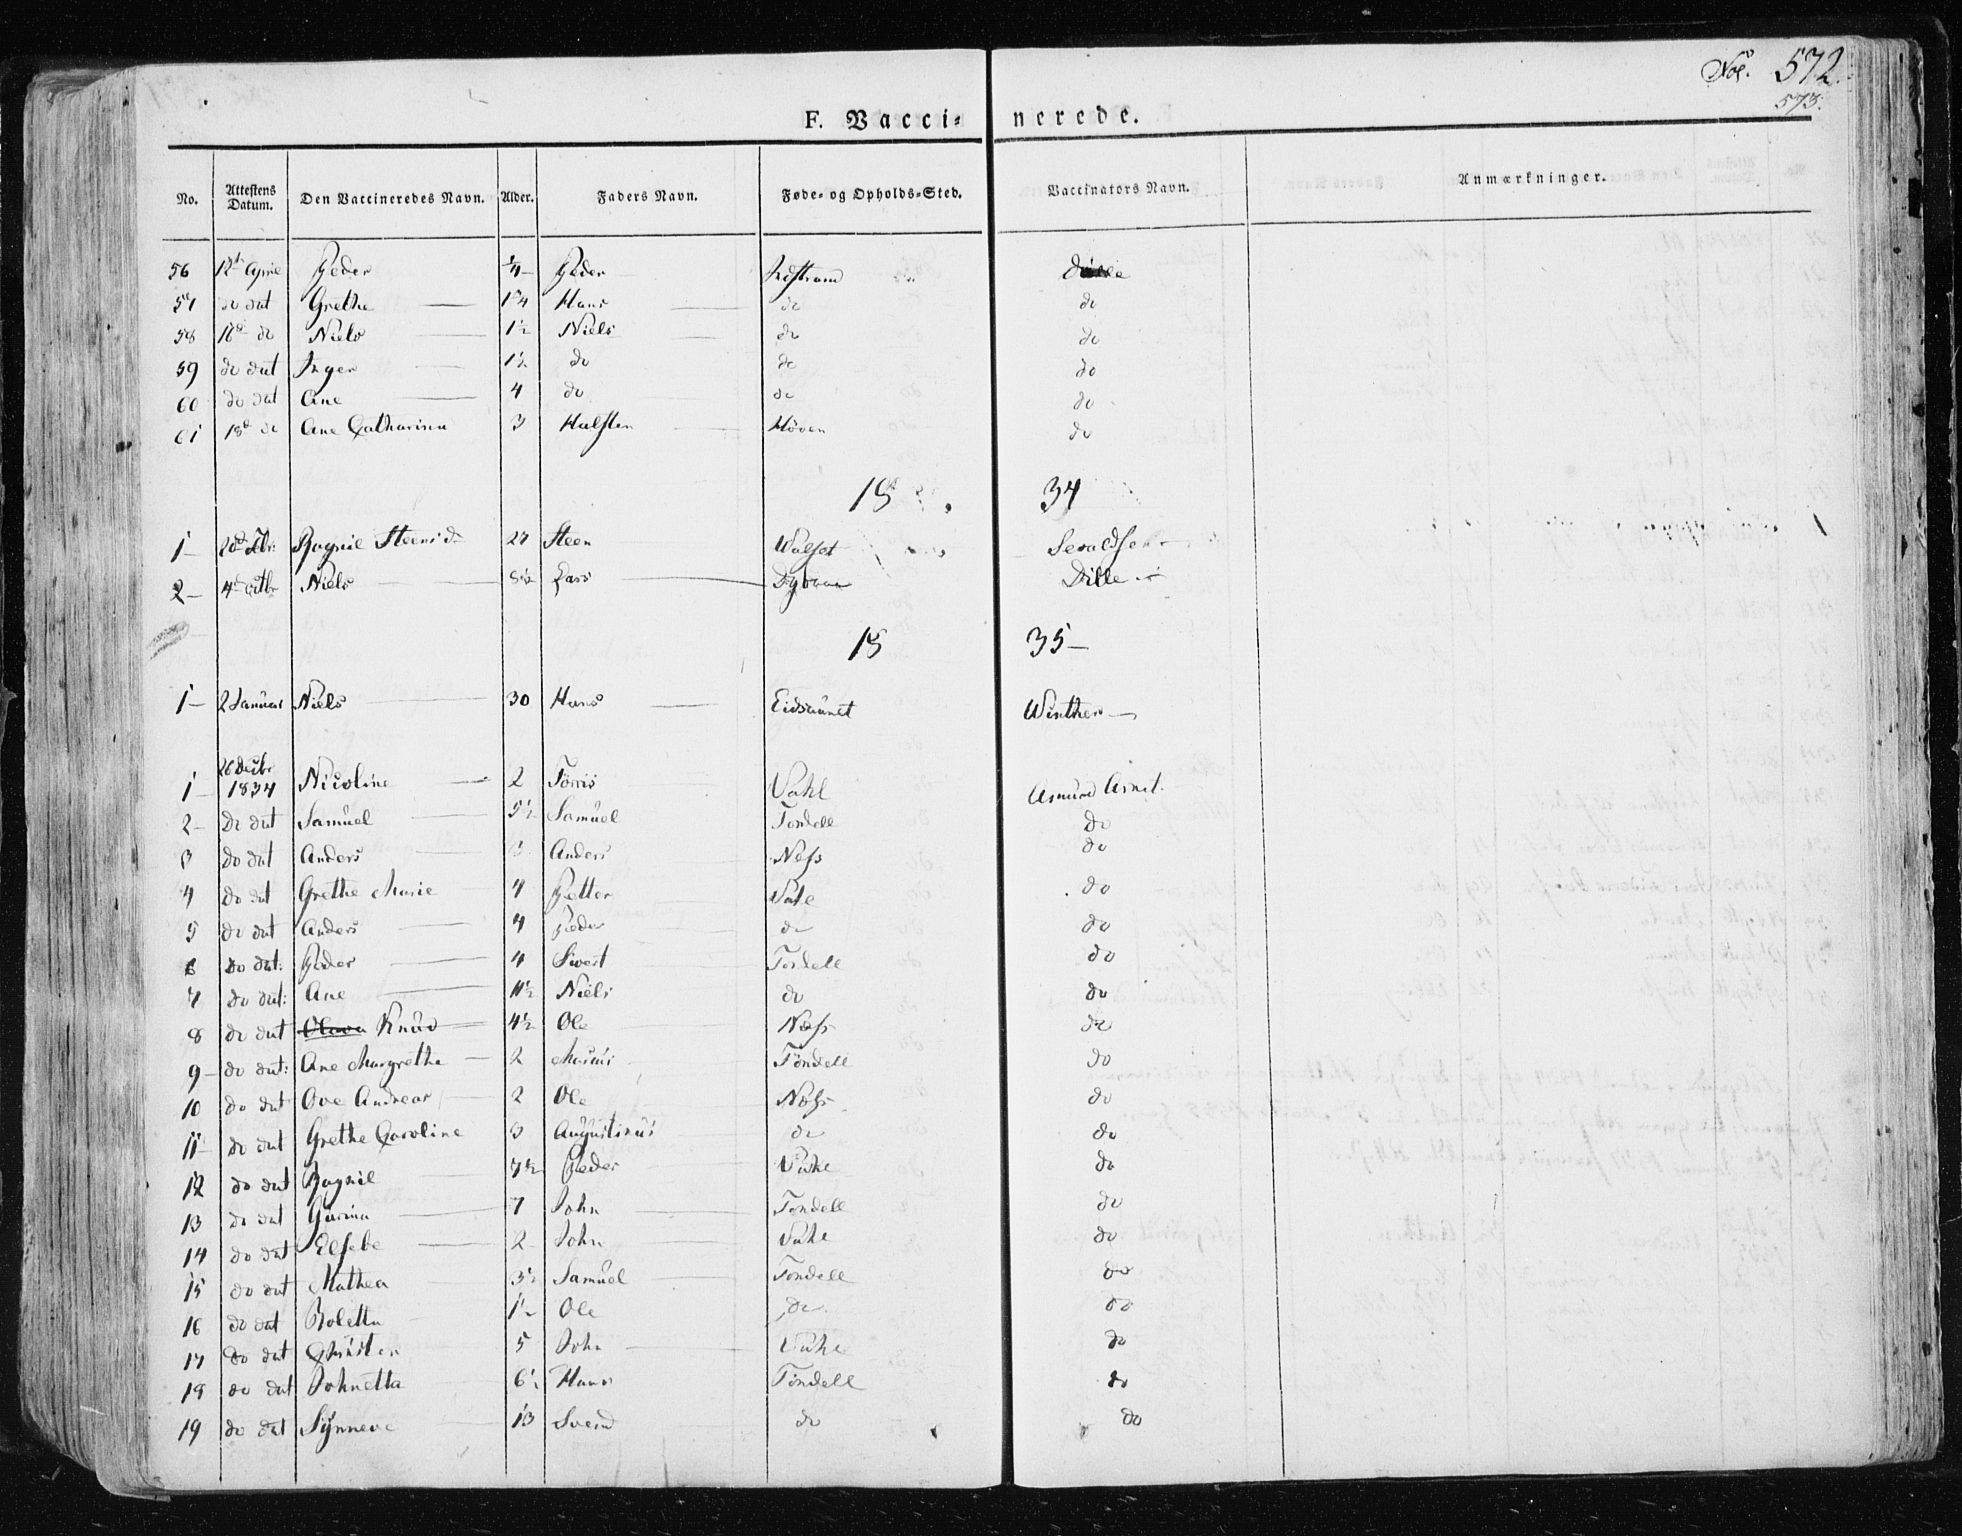 Nol. 572.
573.
F. Vacci- nerede.
No. Attestens Datum. Den Vaccineredes Navn. Alder. Faders Navn. Føde- og Opholds-Sted. Vaccinators Navn. Anmærkninger.
56 12d April Peder 1/4 Peder Dille
57 do dat Grethe 1 3/4 Hans do do
58 do Niels 1½ Niels do do
59 do dat Inger 1½ do do do
60 do dat Ane 4 do do do
61 18d do Ane Catharina 3 Halsten Høven do
18 34
1 Ragnil 27 Steen Walset
2 4d Octbr Niels 8½ Lars Dille
18 35
1 2 Januar Niels 30 Hans Eidsaunet Winther
1 26 Decbr 1834 Nicoline 2 Tørris Vahl Asmund Arnet.
2 Do dat Samuel 5½ Samuel Tondell do
3 do dat Anders 3 Anders Næss do
4 do dat Grethe Marie 4 Petter do
5 do dat Anders 4 Peder do do
6 do dat: Peder 4 Sivert Tondell do
7 do dat: Ane Niels do do
8 do dat Knud 4½ Ole Næss do
9 do dat: Ane Margrethe 2 Tondell do
10 do dat Ove Andreas 2 Ole Næss do
11 do dat Grethe Caroline 3 Augustinus do do
12 do dat Ragnil 7½ Peder do
13 do dat 7 John Tondell do
14 do dat Elsebe 2 John do
15 do dat Mathea 3½ Samuel Tondell do
16 do dat Roletta 1½ Ole do do
17 Do dat 5 John do
18 do dat Johnetta 6½ Hans Tondell do
19 do dat Synneve 13 Svend do do